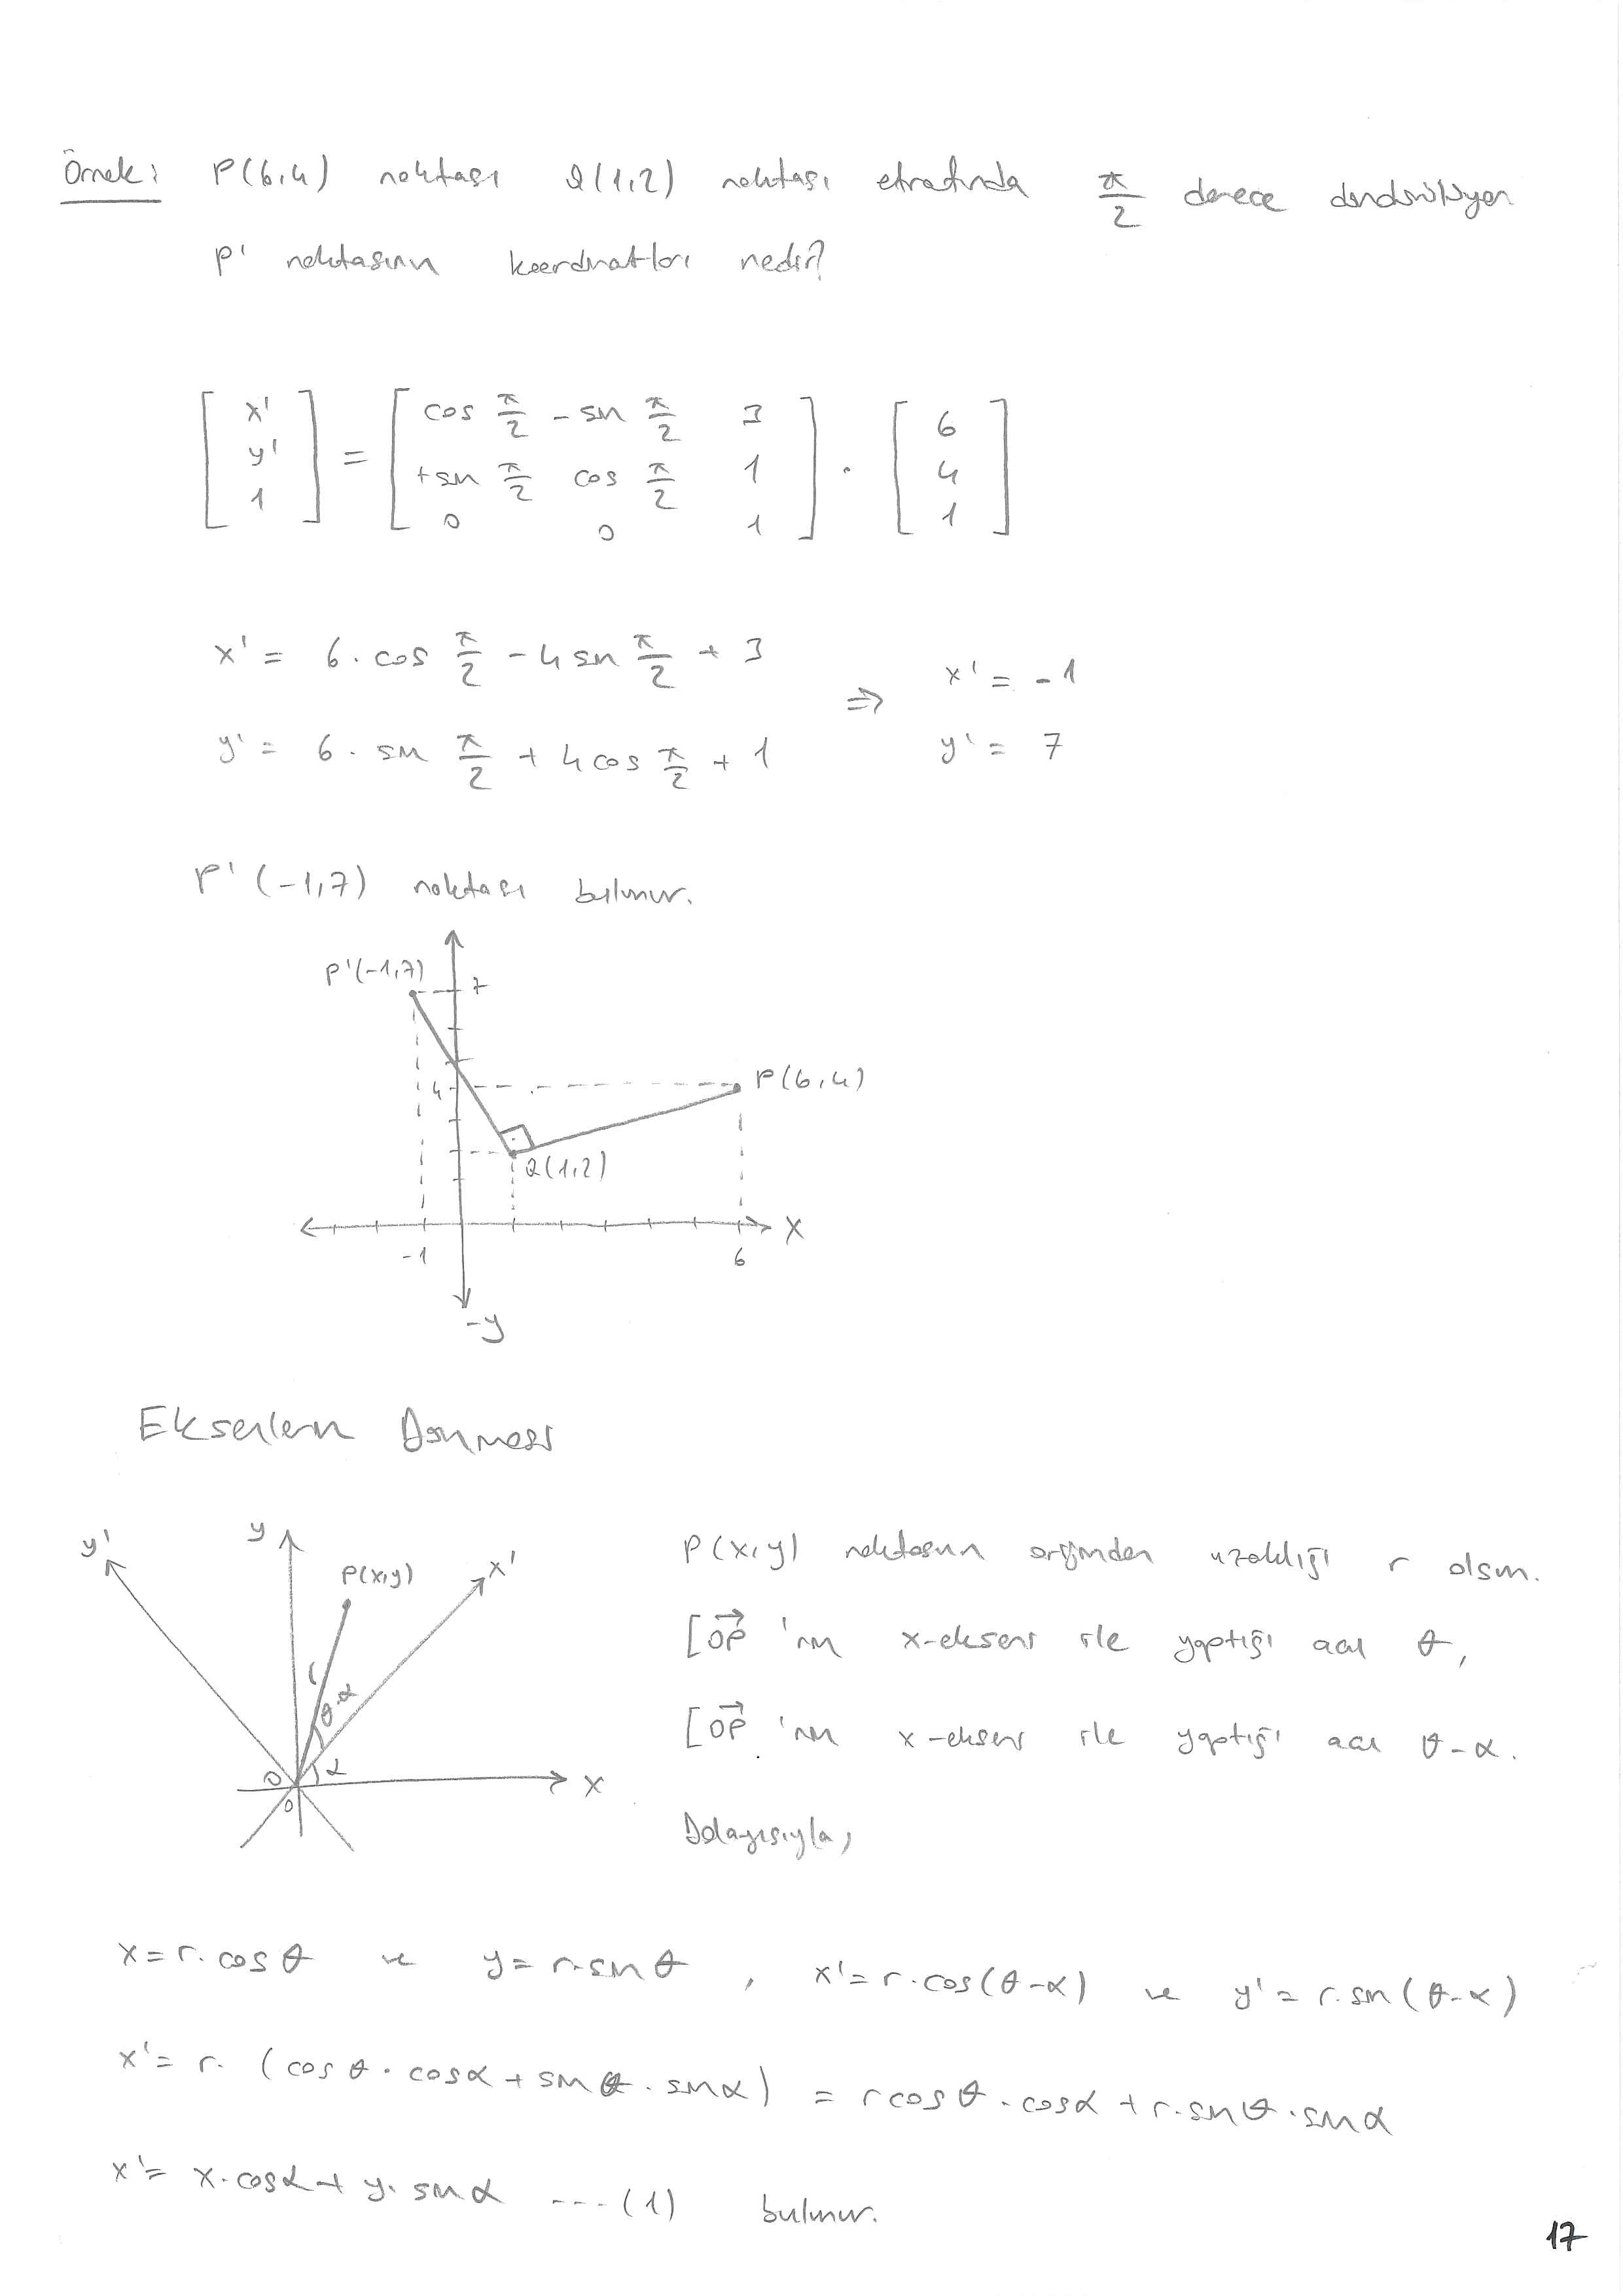 Örnek: P(6,4) noktası Q(1,2) noktası etrafında π/2 derece döndürülüyor.
P' noktasının koordinatları nedir?
[x' y' 1] = [cos π/2 -sin π/2 3; +sin π/2 cos π/2 1; 0 0 1] . [6 4 1]
x' = 6. cos π/2 - 4 sin π/2 + 3
⇒ x' = -1
y' = 6. sin π/2 + 4 cos π/2 + 1
y' = 7
P'(-1,7) noktası bulunur.
P'(-1,7)
7
4
P(6,4)
Q(1,2)
X
-1
6
-y
Eksenlerin Dönmesi
y'
y
P(x,y)
x'
r
θ-α
α
O
O
x
P(x,y) noktasının orijinden uzaklığı r olsun.
[OP 'nın x-ekseni ile yaptığı açı θ,
[OP 'nın x-ekseni ile yaptığı açı θ-α.
Dolayısıyla;
x = r. cos θ ve y = r. sin θ , x' = r. cos(θ-α) ve y' = r. sin(θ-α)
x' = r. (cos θ . cos α + sin θ . sin α) = r cos θ . cos α + r. sin θ . sin α
x' = x. cos α + y. sin α ---(1) bulunur.
17